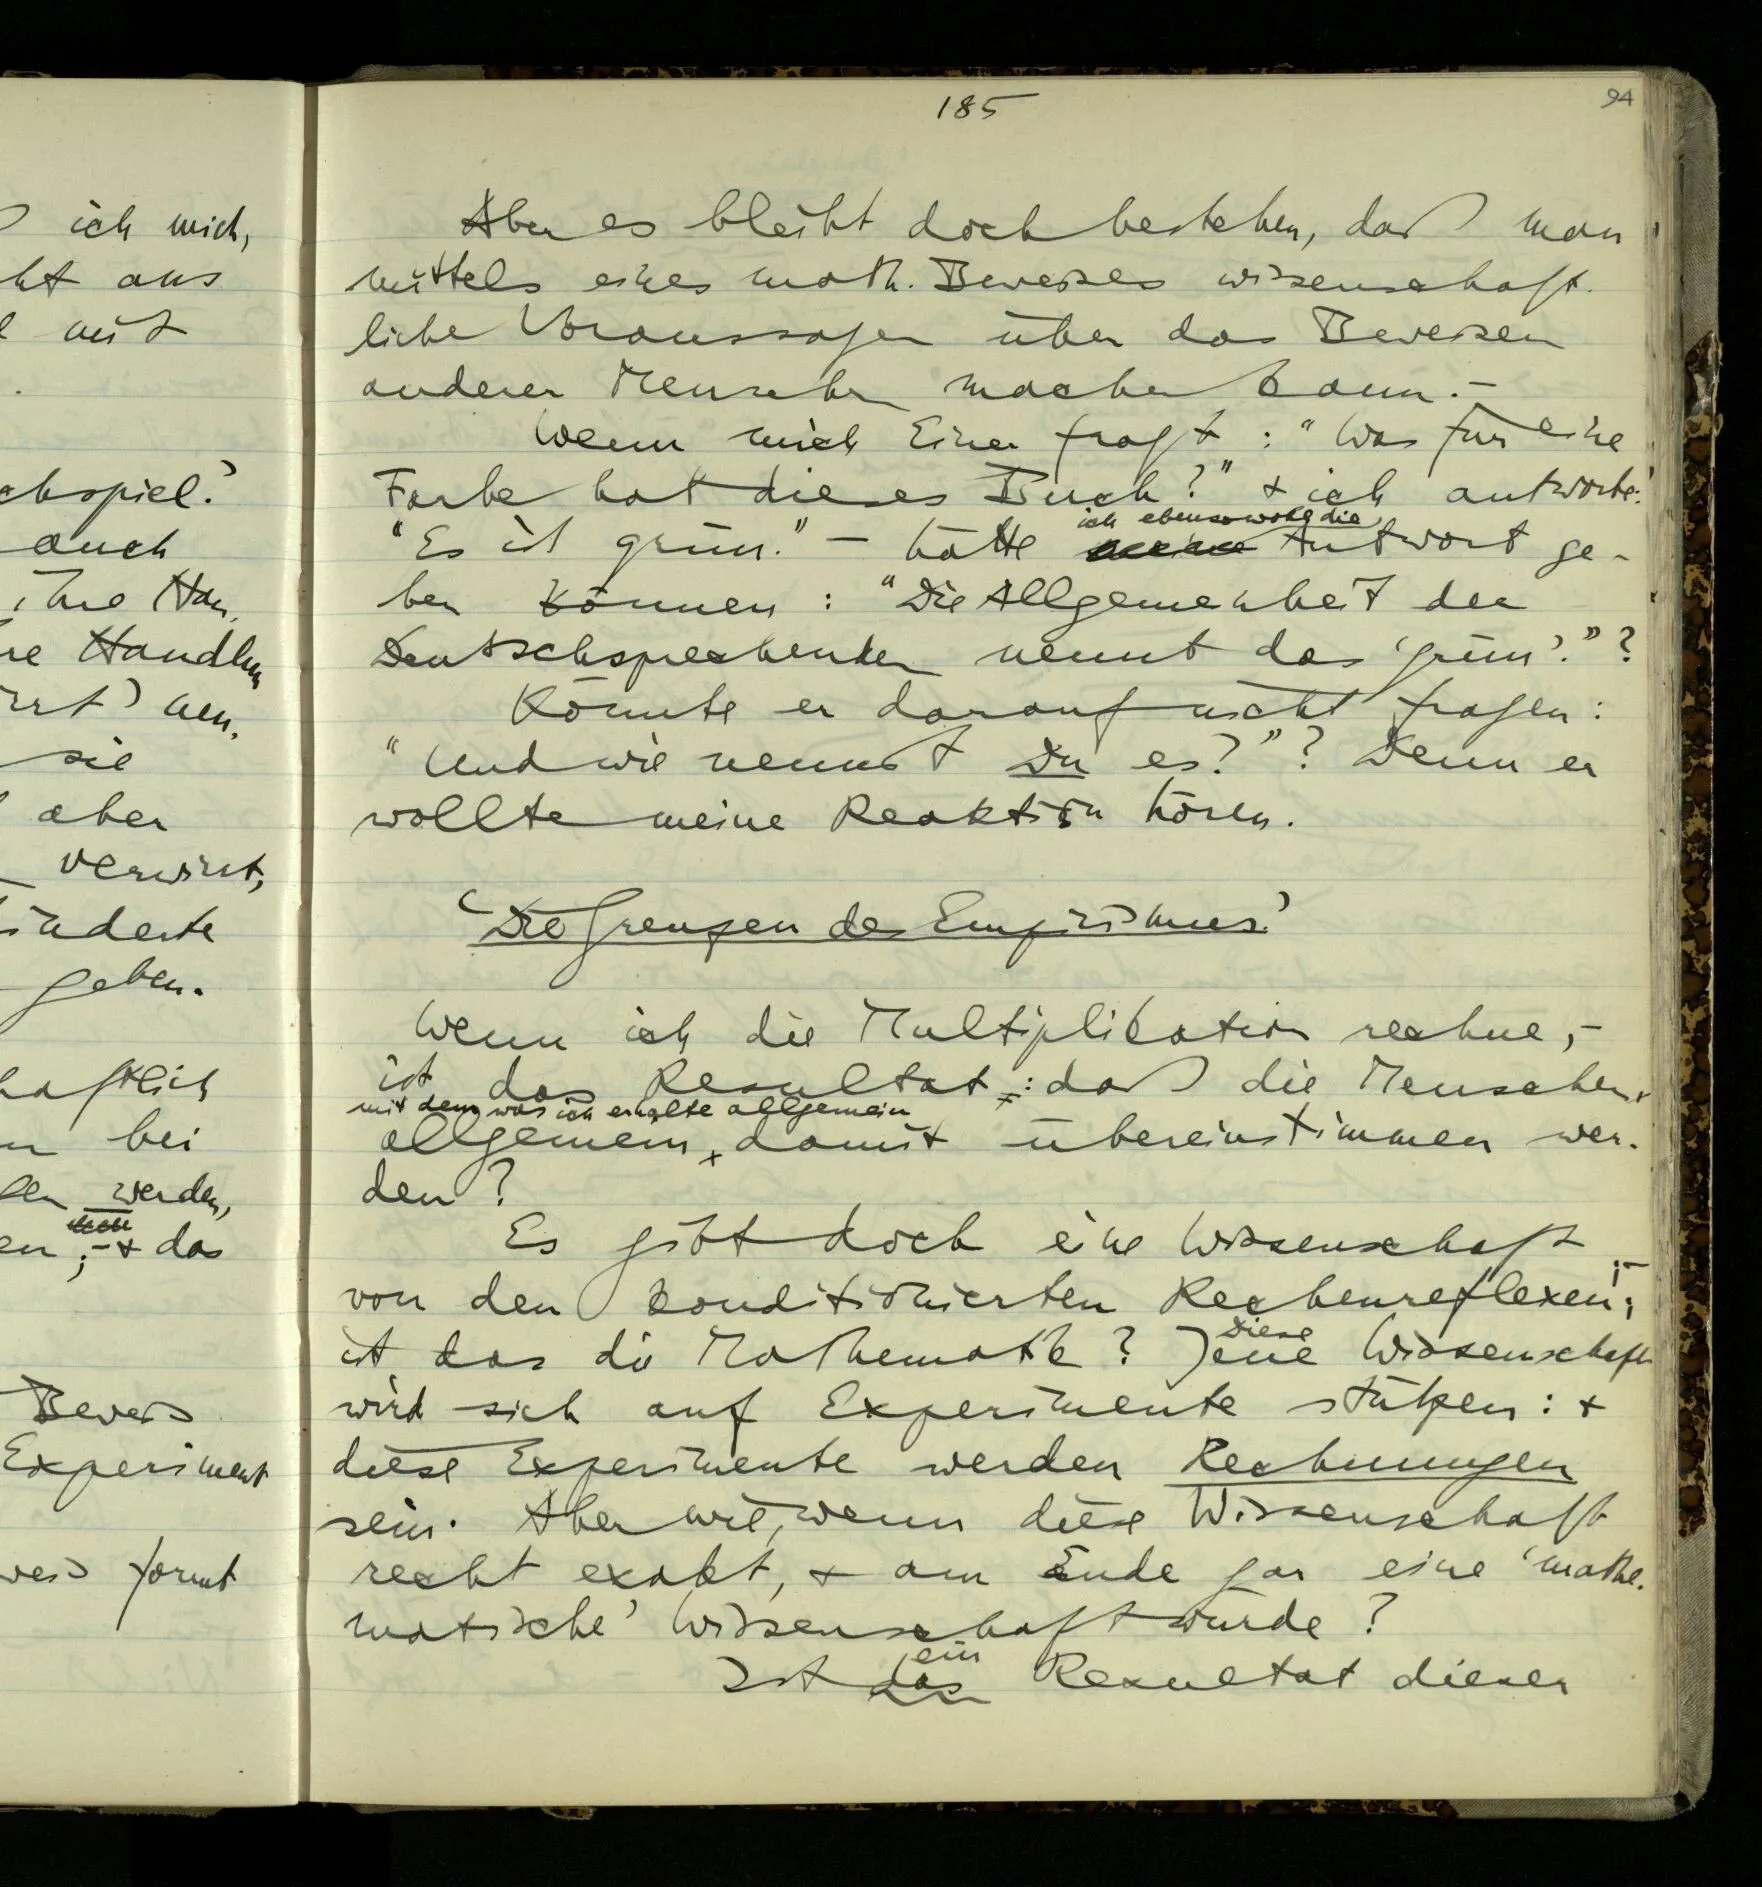 ich mich,
ht aus
mit
chspiel.'
auch
ihre Han
re Handlun
rrt' nen,
sie
aber
verwirrt,
inderte
geben.
haftlich
n bei
len werden,
en ;- + das
Beweis
Experiment
weis formt
185
94
Aber es bleibt doch bestehen, daß man
mittels eines math. Beweises wissenschaft-
liche Voraussagen über das Beweisen
anderer Menschen machen kann. –
Wenn mich Einer fragt: "Was für eine
Farbe hat dieses Buch?" + ich antworte:
"Es ist grün." – hätte ich ebensowohl die Antwort ge-
ben können: "Die Allgemeinheit der
Deutschsprechenden nennt das 'grün'."?
Könnte er darauf nicht fragen:
"Und wie nennst Du es?"? Denn er
wollte meine Reaktion hören.
'Die Grenzen des Empirismus.'
Wenn ich die Multiplikation rechne, –
ist das Resultat: daß die Menschen
mit dem was ich erhalte allgemein
allgemein damit übereinstimmen wer-
den?
Es gibt doch eine Wissenschaft
von den konditionierten Rechenreflexen; –
Diese
ist das die Mathematik? Jene Wissenschaft
wird sich auf Experimente stützen: +
diese Experimente werden Rechnungen
sein. Aber wie, wenn diese Wissenschaft
recht exakt, + am Ende gar eine 'mathe-
matische' Wissenschaft würde?
ein
Ist das Resultat dieser